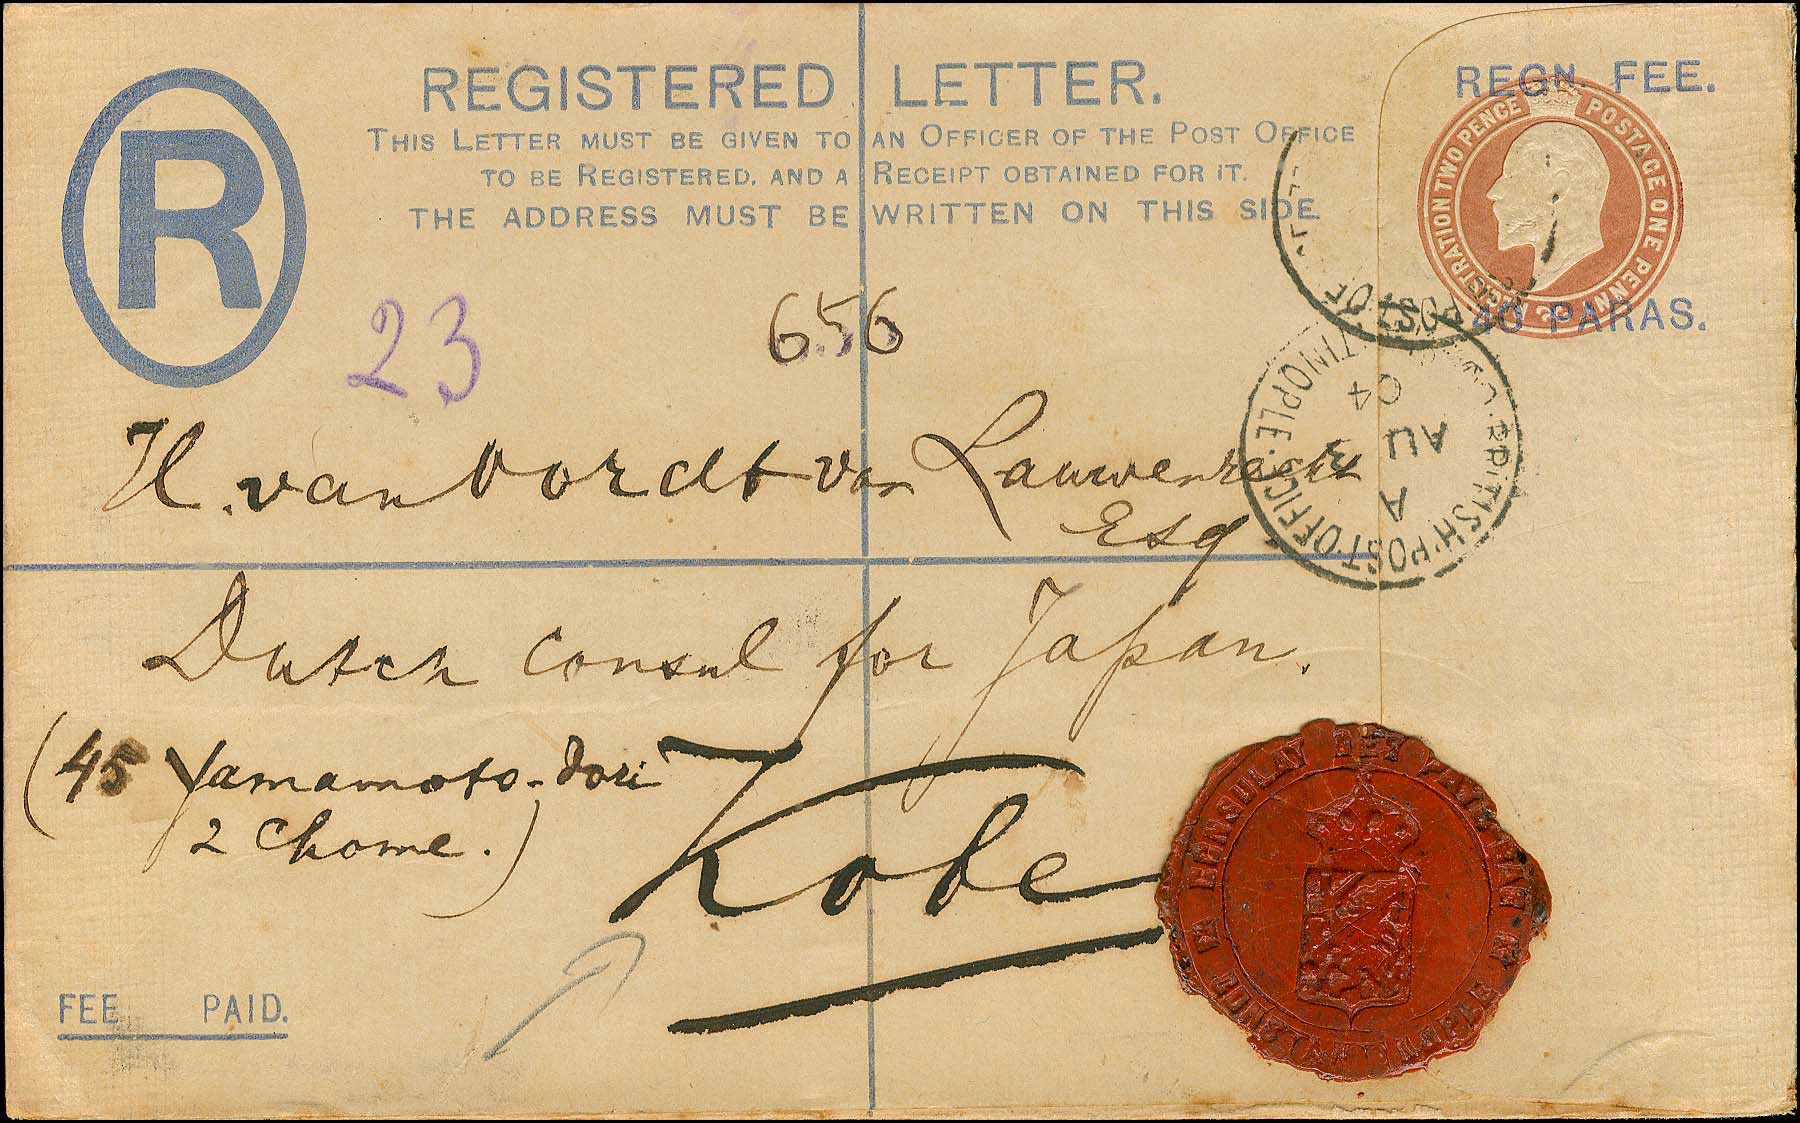 REGISTERED LETTER.
THIS LETTER MUST BE GIVEN TO AN OFFICER OF THE POST OFFICE
TO BE REGISTERED, AND A RECEIPT OBTAINED FOR IT.
THE ADDRESS MUST BE WRITTEN ON THIS SIDE.
R
REGN. FEE.
REGISTRATION TWO PENCE POSTAGE ONE PENNY
40 PARAS.
POST OF
23
656
BRITISH POST OFFICE
A
AU 3
04
H. van
van
Esq
Dutch consul for Japan.
(45 Yamamoto-dori
2 Chome.)
Kobe
FEE PAID.